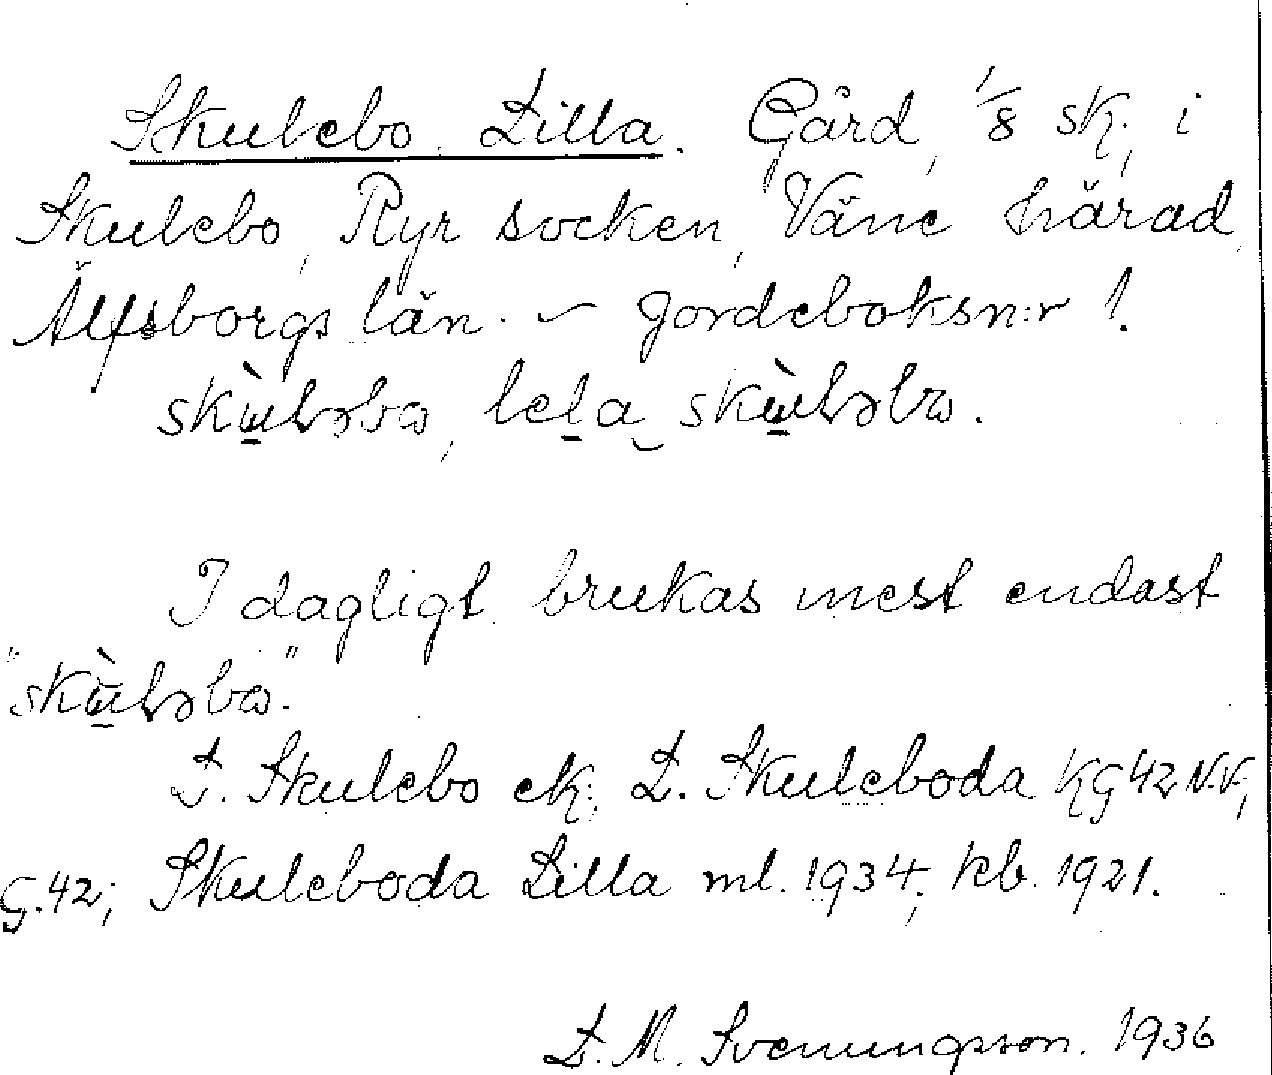 Skulebo Lilla. Gård, 1/8 sk. i
Skulebo, Ryr socken, Väne härad,
Älfsborgs län. – Jordeboksn:r 1.
skù̱lɔbɷ, lel̠a skù̱lɔbɷ.
I dagligt brukas mest endast
"skù̱lɔbɷ".
L. Skulebo ek; L. Skuleboda KG 42 N.V,
G.42; Skuleboda Lilla ml. 1934; kb. 1921.
L. M. Svenungsson. 1936